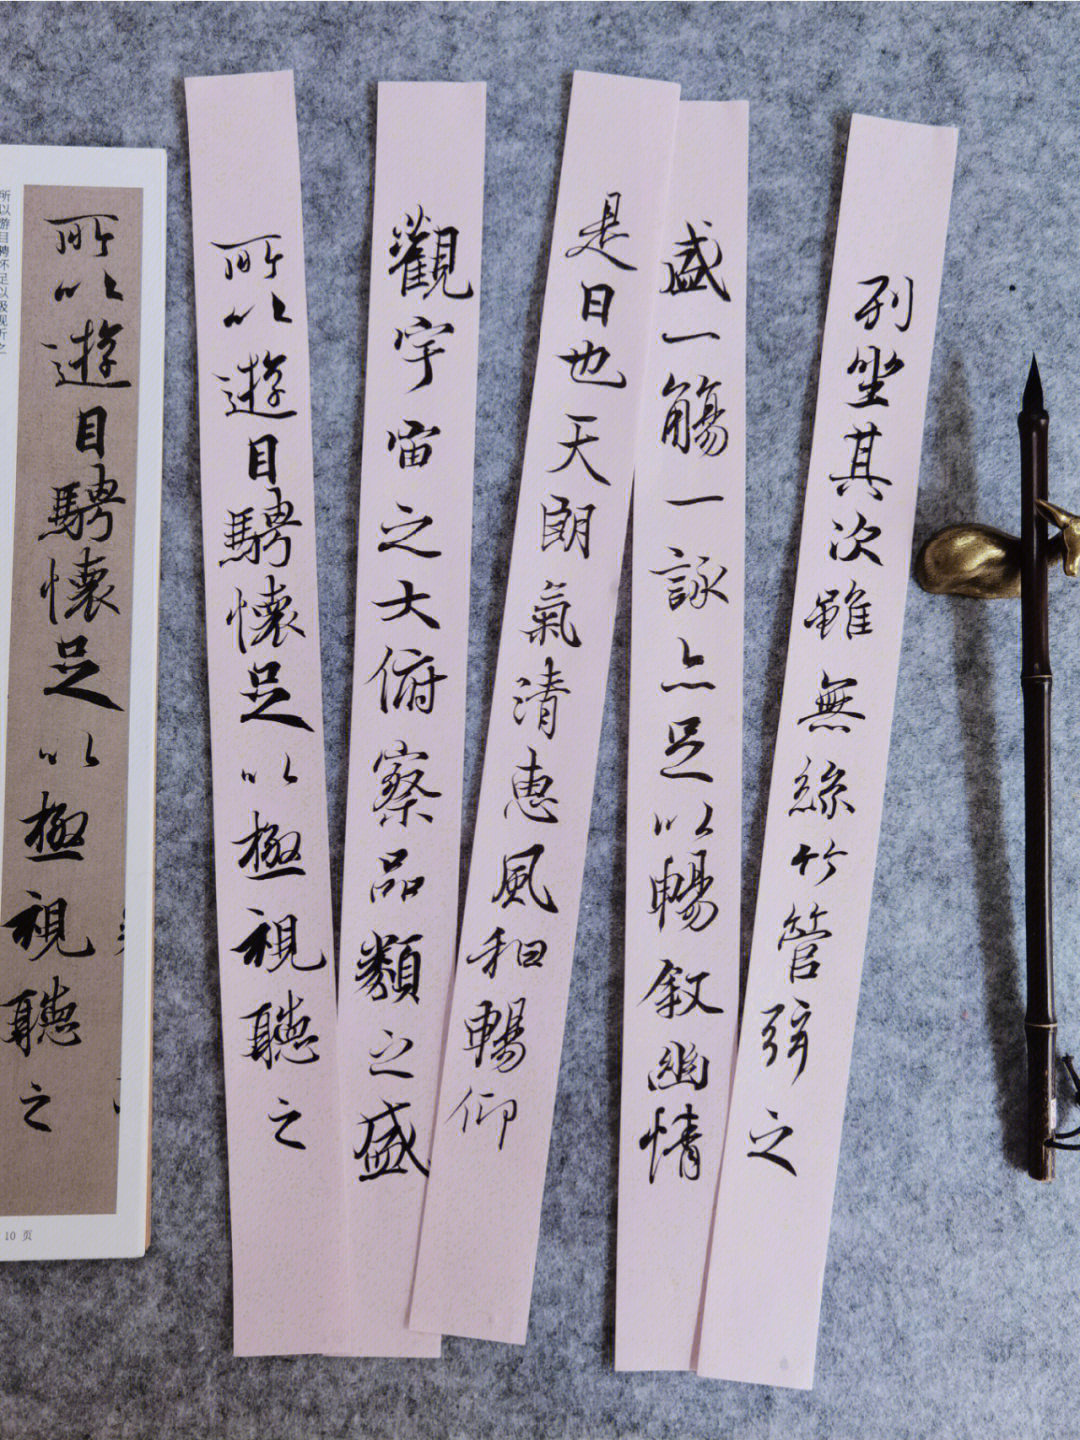 列坐其次雖無絲竹管弦之
盛一觴一詠亦足以暢敘幽情
是日也天朗氣清惠風和暢仰
觀宇宙之大俯察品類之盛
所以遊目騁懷足以極視聽之
所以遊目騁懷足以極視聽之
所以游目骋怀足以极视听之
10 页